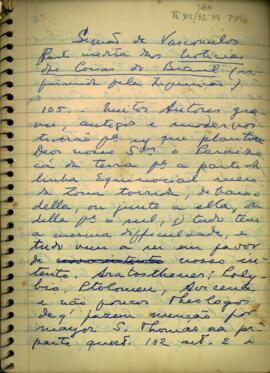 SBH
Pi 95/32.09 P49
Simão de Vasconcelos
Parte inedita das Noticias
das Coisas do Brasil
105 - Muitos Autores gra-
ves, antigos e modernos
tiverão pª si que plantou
Deos nosso Sor o Paraizo
da terra pª a parte
linha Equinocial meya
da Zona torrida, debaixo
della, ou junto a ella, ou
della pª o sul, tudo tem
a mesma difficuldade, e
tudo vem a ser em favor
de nosso in-
tento. Aratosthenes, Poly-
bio, Ptolomeu, Avicena
e não poucos Theologos
de q' fazem menção por
mayor S. Thomas na pª
parte quest. 102 art. 2 e